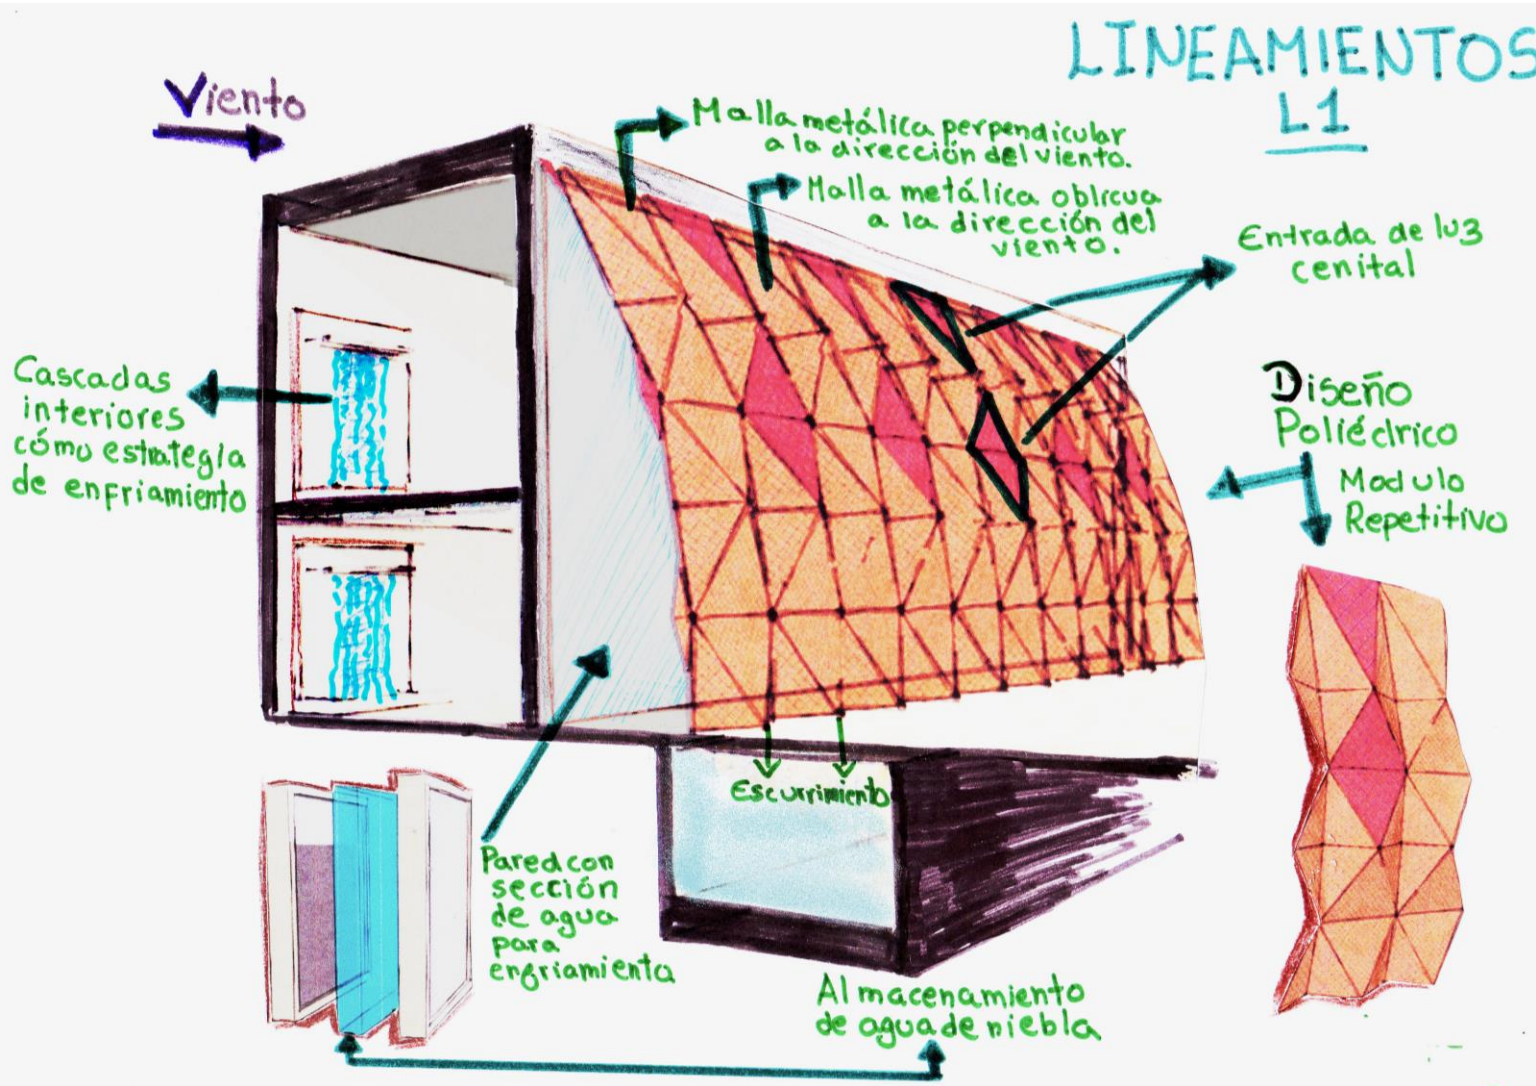 LINEAMIENTOS
L1
Viento
Malla metálica perpendicular
a la dirección del viento.
Malla metálica oblicua
a la dirección del
viento.
Entrada de luz
cenital
Cascadas
interiores
cómo estrategia
de enfriamiento
Diseño
Poliédrico
Modulo
Repetitivo
Escurrimiento
Pared con
sección
de agua
para
enfriamienta
Almacenamiento
de agua de niebla